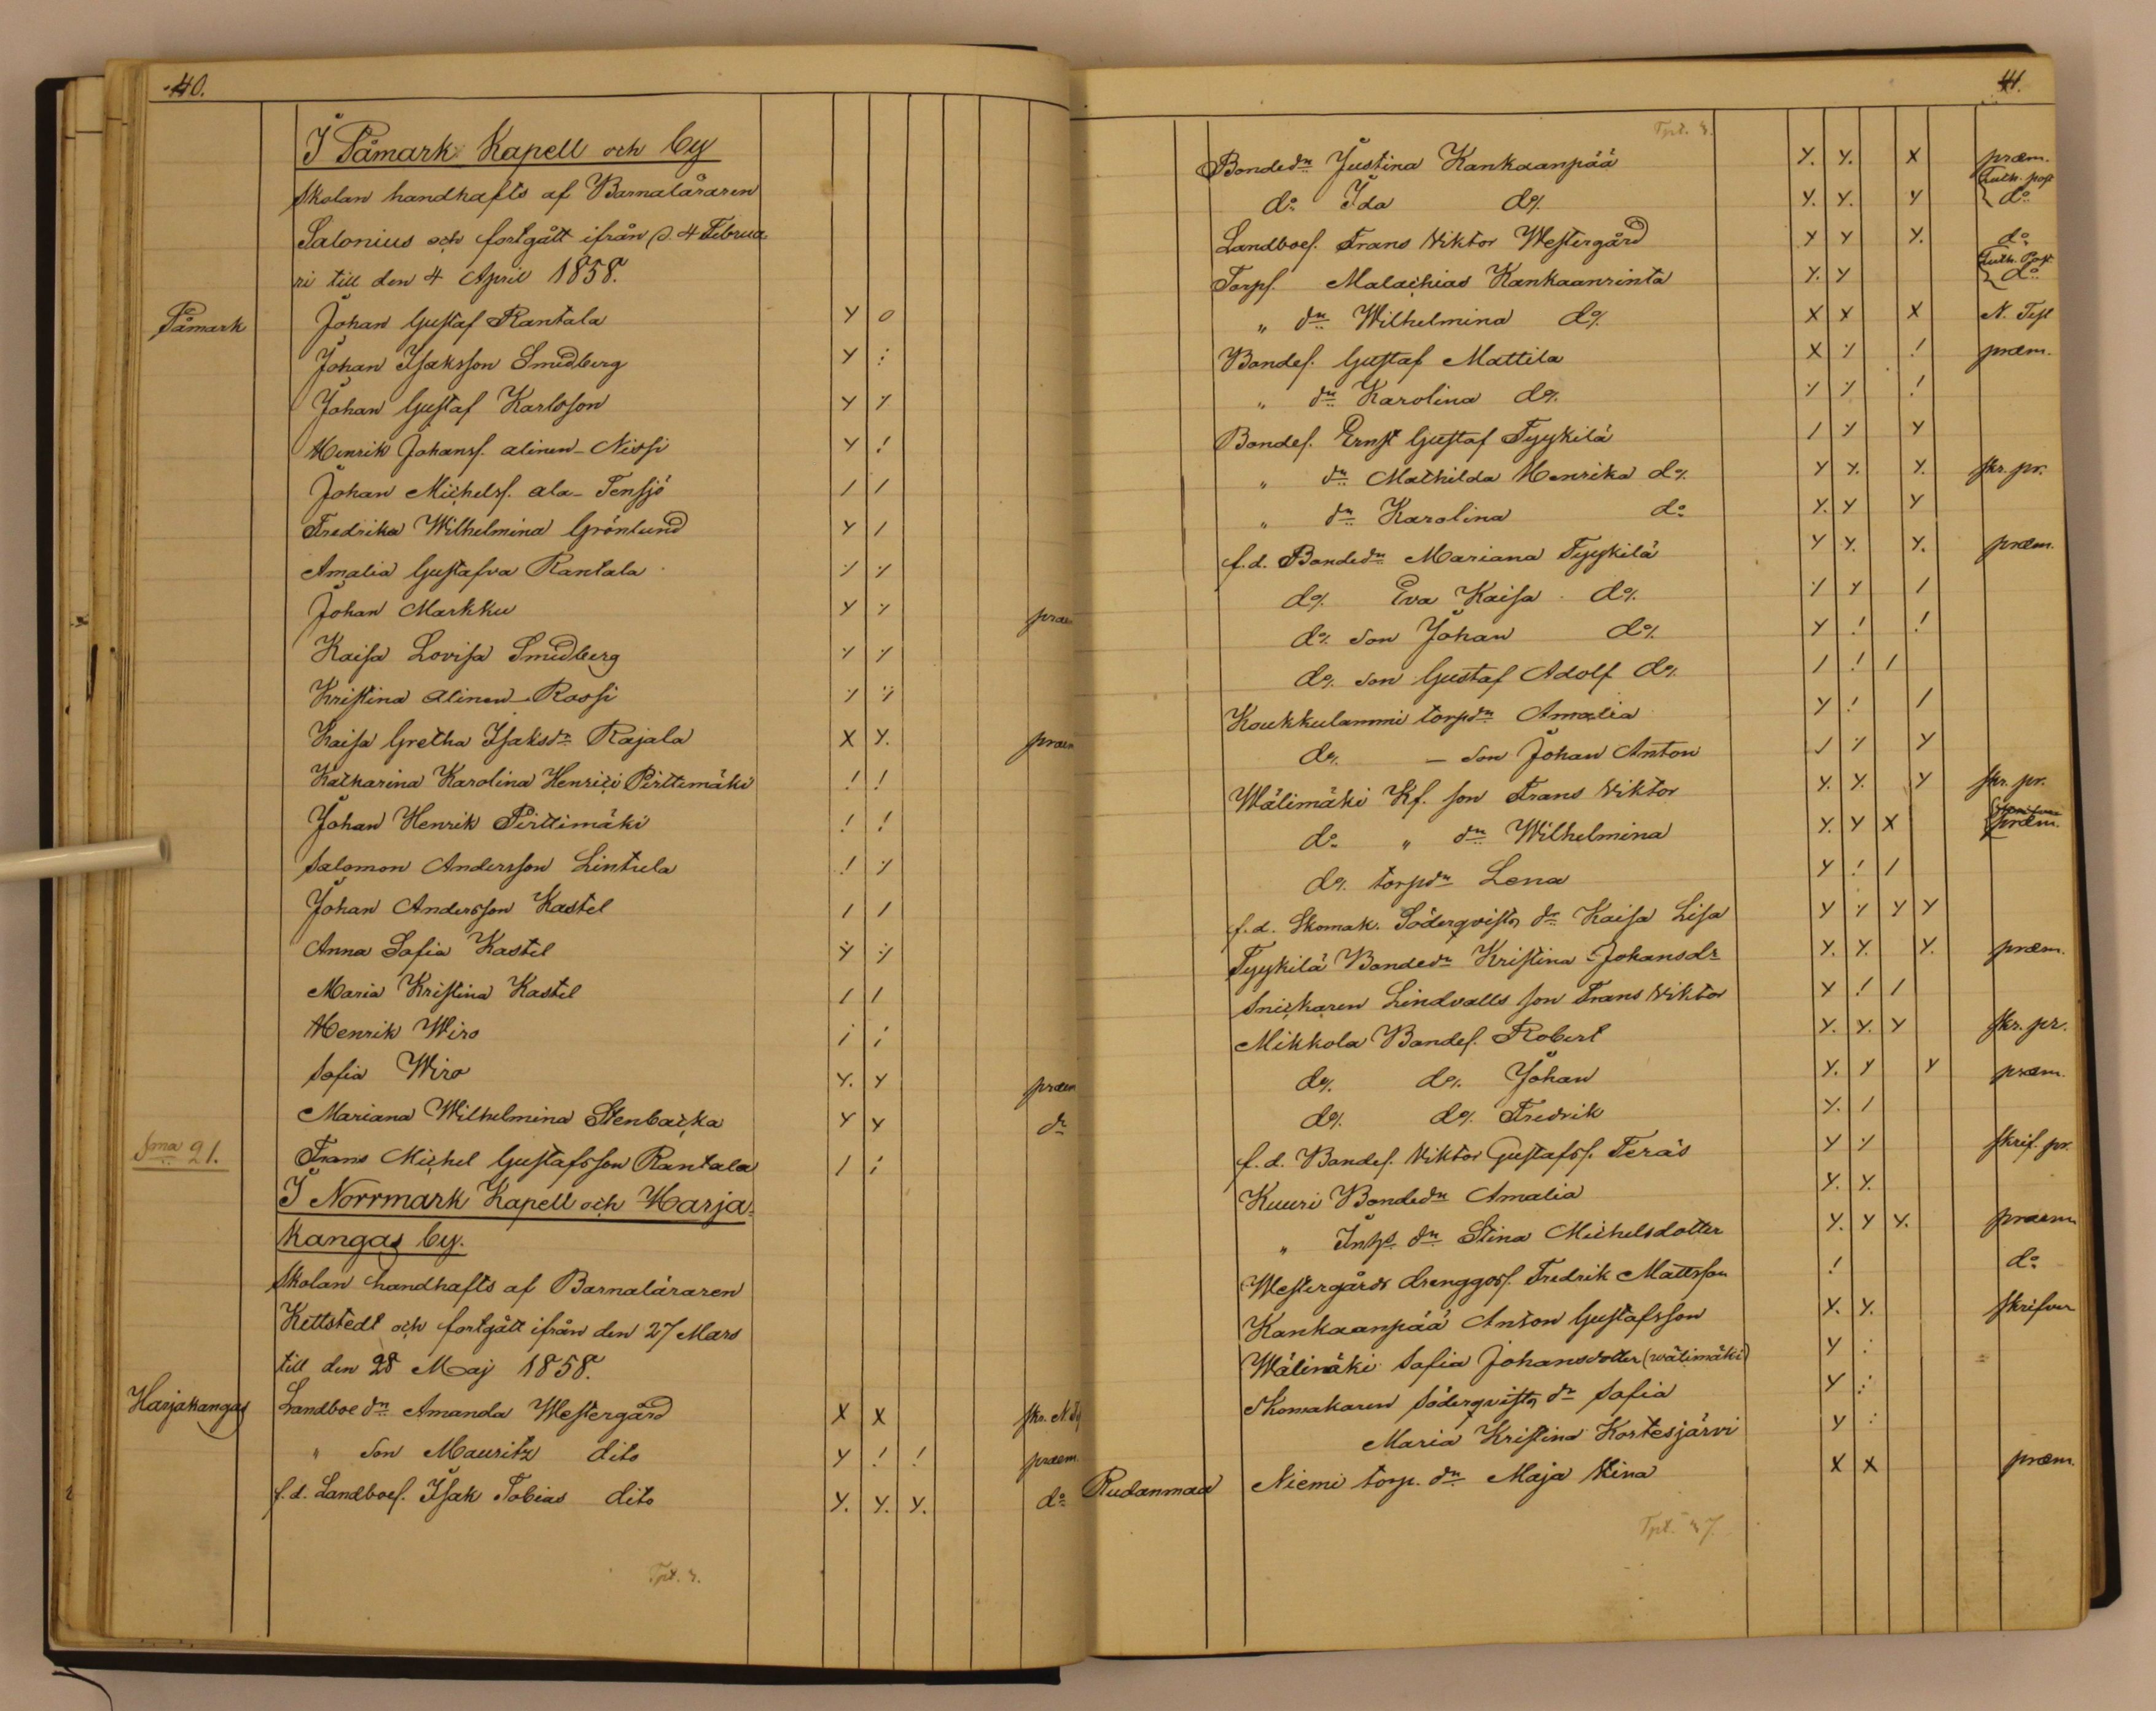 40.
I Påmark Kapell och by
Skolan handhafts af Barnaläraren
Salonius och fortgått ifrån d. 4 Februa
ri till den 4 April 1858.
Påmark Johan Gustaf Rantala Y o
Johan Isaksson Smedberg Y :
Johan Gustaf Karlsson Y ./.
Henrik Johanss. alinen-Nissi Y !
Johan Michelss. ala-Tensjö / /
Fredrika Wilhelmina Grönlund Y /
Amalia Gustafva Rantala ./. ./.
Johan Markku Y ./. præm
Kaisa Lovisa Smedberg ./. ./.
Kristina alinen-Rossi ./. ./.
Kaisa Gretha Isaksdr Rajala X Y. præm
Katharina Karolina Henrici Pirttimäki ! !
Johan Henrik Pirttimäki ! !
Salomon Andersson Lintula ! ./.
Johan Andersson Kastel / /
Anna Sofia Kastel Y ./.
Maria Kristina Kastel / /
Henrik Wiro i i
Sofia Wiro Y. Y præm
Mariana Wilhelmina Stenbacka Y Y do
Sma 21. Frans Michel Gustafsson Rantala / i
I Norrmark Kapell och Harja-
kangas by.
Skolan handhafts af Barnaläraren
Kettstedt och fortgått ifrån den 27 Mars
till den 28 Maj 1858.
Harjakangas Landboe dr Amanda Westergård X X skr. N. T
" son Mauritz dito Y ! ! præm.
f.d. Landboes. Isak Tobias dito Y. Y. Y. do
Tpt. 3.
41.
Tpt. 3.
Bondedr Justina Kankaanpää Y. Y. X præm.
do Ida do Y. Y. Y Luth. post do
Landboes. Frans Viktor Westergård Y Y Y. do
Torps. Malachias Kankaanrinta Y. Y Luth. Post. do
" dr Wilhelmina do X X X N. Test
Bondes. Gustaf Mattila X ./. ! præm.
" dr Karolina do ./. ./. !
Bondes. Ernst Gustaf Tyykilä / ./. Y
" dr Mathilda Henrika do Y Y. Y. skr. pr.
" dr Karolina do Y. Y Y
f.d. Bondedr Mariana Tyykilä Y Y. Y. præm.
do Eva Kaisa do ./. Y /
do son Johan do Y ! !
do son Gustaf Adolf do / ! /
Koukkulammi torpdr Amalia Y ! /
do — son Johan Anton / ./. Y
Wälimäki Kf. son Frans Viktor Y. Y. Y skr. pr.
do " dr Wilhelmina Y. Y X præm.
do torpdr Lena Y ! /
f.d. Skomak. Söderqvists dr Kaisa Lisa Y ./. Y Y
Tyykilä Bondedr Kristina Johansdr Y. Y. Y. præm.
Snickaren Lindvalls son Frans Viktor Y ! /
Mikkola Bondes. Robert Y. Y. Y skr. pr.
do do Johan Y. Y Y præm.
do do Fredrik Y. /
f.d. Bondes. Viktor Gustafss. Teräs Y ./. skrif. pr.
Kuuri Bondedr Amalia Y. Y.
" Inhs. dr Stina Michelsdotter Y. Y Y. præm
Westergårds drenggoss. Fredrik Mattsson ! do
Kankaanpää Anton Gustafsson Y. Y. skrifver
Wälimäki Sofia Johansdotter (wälimäki) Y :
Skomakaren Söderqvists dr Sofia Y :
Maria Kristina Kortesjärvi Y :
Rudanmaa Niemi torp. dr Maja Stina X X præm.
Tpt. 37